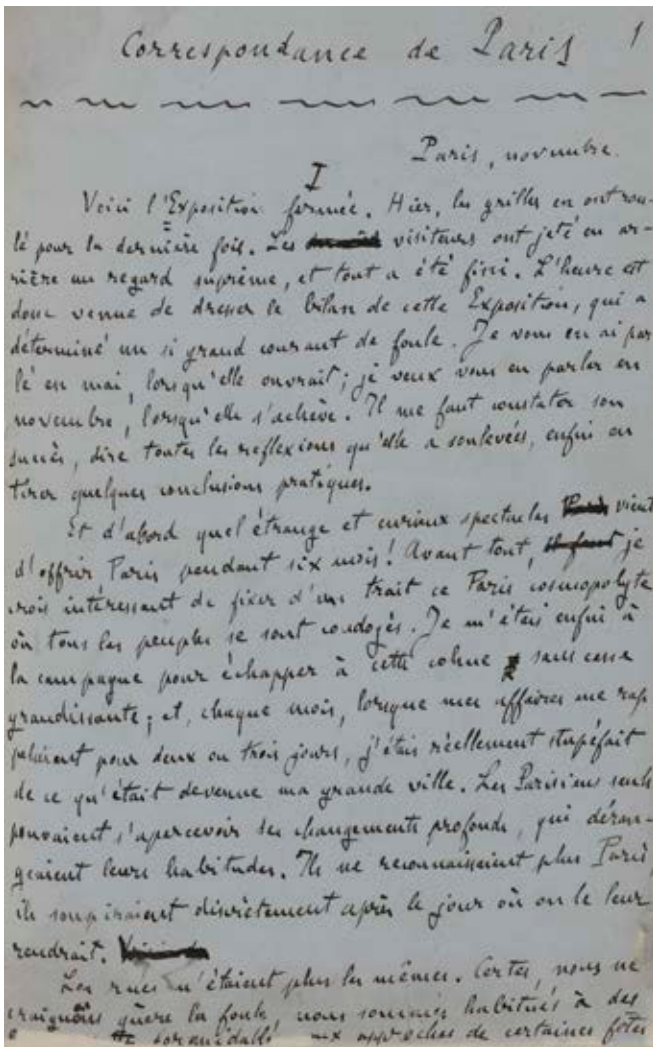 Correspondance de Paris 1
Paris, novembre.
I
Voici l'Exposition fermée. Hier, les grilles en ont rou-
lé pour la dernière fois. Les visiteurs ont jeté en ar-
rière un regard suprême, et tout a été fini. L'heure est
donc venue de dresser le bilan de cette Exposition, qui a
déterminé un si grand courant de foule. Je vous en ai par
lé en mai, lorsqu'elle ouvrait; je veux vous en parler en
novembre, lorsqu'elle s'achève. Il me faut constater son
succès, dire toutes les reflexions qu'elle a soulevées, enfin en
tirer quelques conclusions pratiques.
Et d'abord quel étrange et curieux spectacles vient
d'offrir Paris pendant six mois! Avant tout, je
crois intéressant de fixer d'un trait ce Paris cosmopolyte
où tous les peuples se sont coudoyés. Je m'étais enfui à
la campagne pour échapper à cette cohue sans cesse
grandissante; et, chaque mois, lorsque mes affaires me rap
pelaient pour deux ou trois jours, j'étais réellement stupéfait
de ce qu'était devenue ma grande ville. Les Parisiens seuls
pouvaient s'apercevoir des changements profonds, qui déran-
geaient leurs habitudes. Ils ne reconnaissaient plus Paris,
ils soupiraient discrètement après le jour où on le leur
rendrait.
Les rues n'étaient plus les mêmes. Certes, nous ne
craignons guère la foule, nous sommes habitués à des
aux approches de certaines fêtes